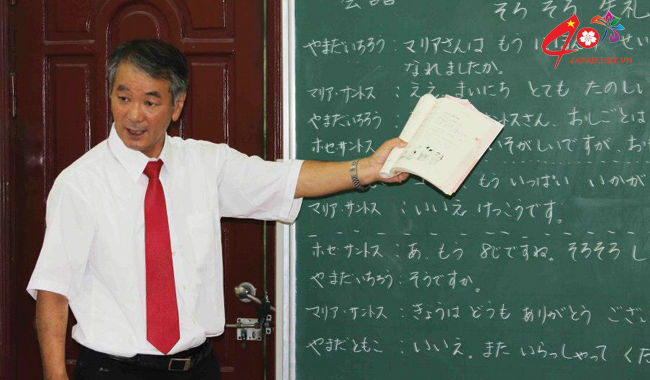 会話 そろ そろ 失礼
やまだいちろう：マリアさんは もう に せい
なれましたか。
マリア・サントス：ええ、まいにち とても たのしい
やまだいちろう： さん、おしごとは
ホセ・サントス： そがしいですが、お
もう いっぱい いかが
マリア・サントス：いいえ、けっこうです。
ホセ・サントス：あ、もう 8じですね。そろそろ し
やまだいちろう：そうですか。
マリア・サントス：きょうは どうも ありがとう ござい
やまだともこ：いいえ。また いらっしゃって くだ
JAPAN.NET.VN